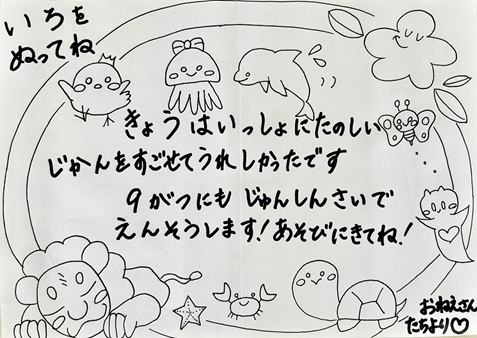 いろを
ぬってね
きょうはいっしょにたのしい
じかんをすごせてうれしかったです
9がつにもじゅんしんさいで
えんそうします!あそびにきてね!
おねえさん
たちより♡